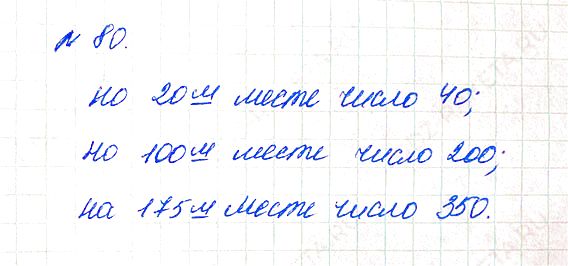 № 80.
но 20м месте число 40;
но 100м месте число 200;
на 175м месте число 350.